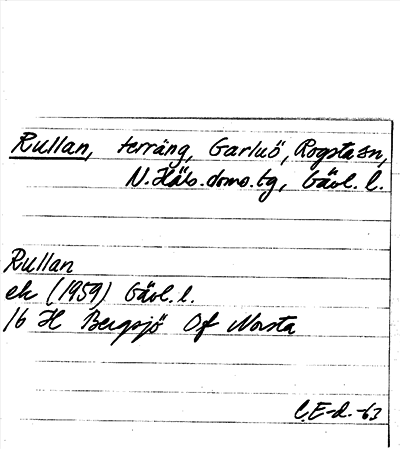 Rullan, terräng, Garluö, Rogsta sn,
N. Häls. doms. tg, Gävl. l.
Rullan
ek (1959) Gävl. l.
16 H Bergsjö Of Norsta
C.E-d. -63